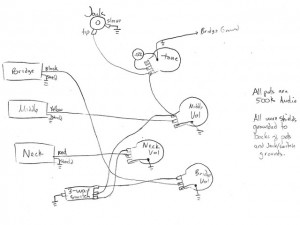 Jack
sleeve
tip
Bridge Ground
tone
Bridge
Black
Middle
Yellow
Middle
Vol
Neck
Red
Neck
Vol
Bridge
Vol
3-way
Switch
All pots are
500k Audio
All wire shields
grounded to
backs of pots
and jack/switch
grounds.